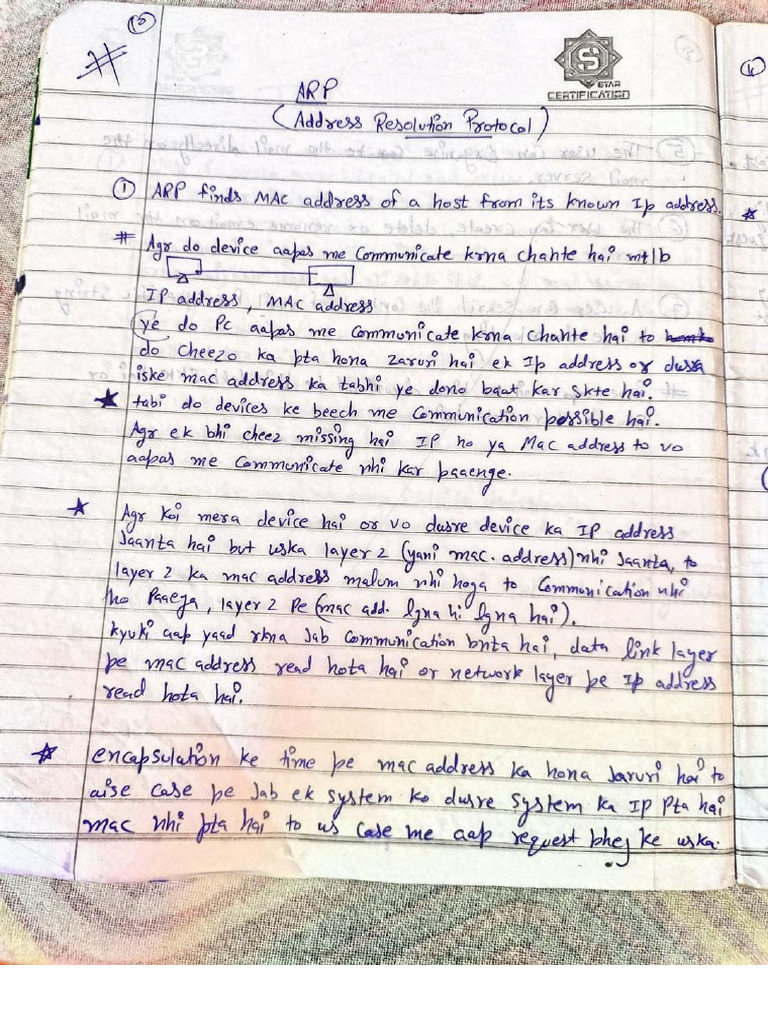 10
#
S
STAR
CERTIFICATION
ARP
(Address Resolution Protocol)
① ARP finds MAC address of a host from its known Ip address.
# Agr do device aapas me Communicate krna chahte hai mtlb
IP address, MAC address
ye do Pc aapas me communicate krna chahte hai to
do cheezo ka pta hona zaruri hai ek Ip address or dusra
iske mac address ka tabhi ye dono baat kar skte hai.
★ tabi do devices ke beech me Communication possible hai.
Agr ek bhi cheez missing hai IP ho ya Mac address to vo
aapas me Communicate nhi kar paaenge.
★ Agr Koi mera device hai or vo dusre device ka IP address
Jaanta hai but uska layer 2 (yani mac. address) nhi Jaanta, to
layer 2 ka mac address malum nhi hoga to Communication nhi
ho Paaega, layer 2 Pe (mac add. lgna hi lgna hai).
kyuki aap yaad rkna Jab Communication bnta hai, data link layer
pe mac address read hota hai or network layer pe Ip address
read hota hai.
★ encapsulation ke time pe mac address ka hona Jaruri hai to
aise case pe Jab ek system ko dusre system ka IP Pta hai
mac nhi pta hai to us case me aap request bhej ke uska.